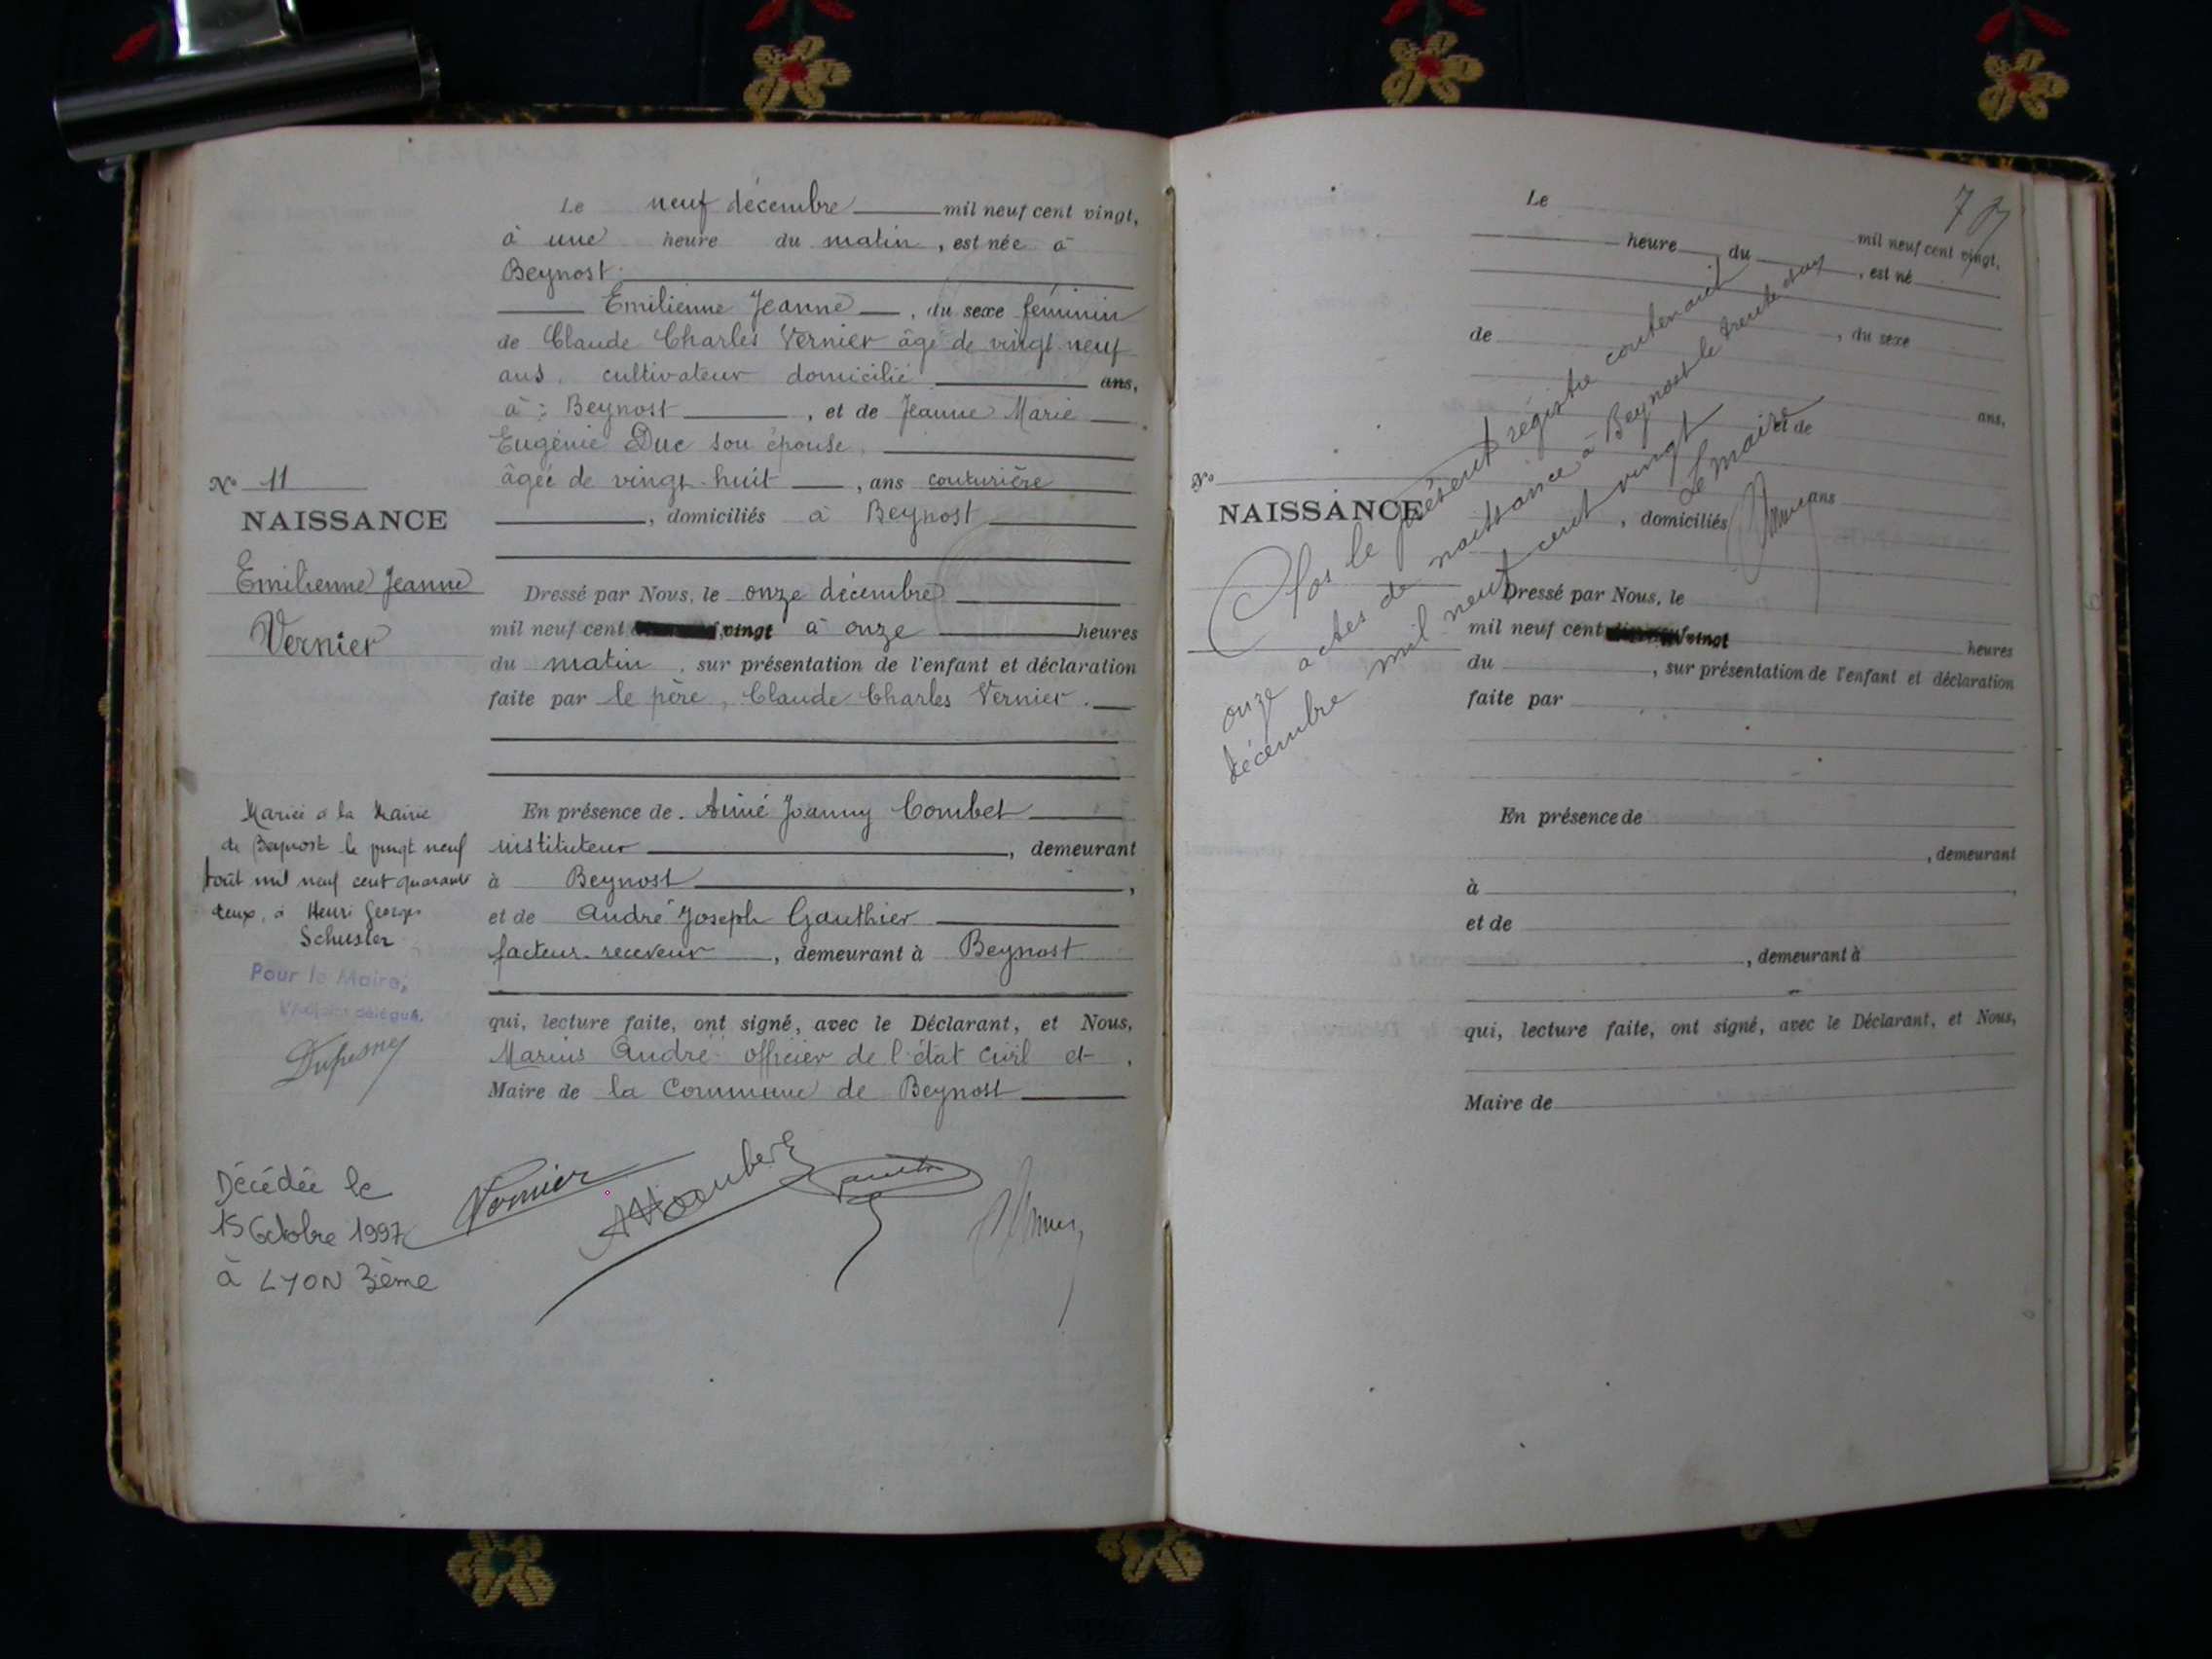 Le neuf décembre mil neuf cent vingt,
à une heure du matin, est née à
Beynost
Emilienne Jeanne, du sexe féminin
de Claude Charles Vernier âgé de vingt neuf
ans, cultivateur domicilié ans,
à : Beynost, et de Jeanne Marie
Eugénie Duc son épouse,
âgée de vingt-huit, ans couturière
, domiciliés à Beynost
N° 11
NAISSANCE
Emilienne Jeanne
Vernier
Dressé par Nous, le onze décembre
mil neuf cent vingt à onze heures
du matin, sur présentation de l'enfant et déclaration
faite par le père, Claude Charles Vernier.
En présence de Aimé Joanny Combet
instituteur, demeurant
à Beynost,
et de André Joseph Gauthier
facteur-receveur, demeurant à Beynost
qui, lecture faite, ont signé, avec le Déclarant, et Nous,
Marius André officier de l'état civil et
Maire de la Commune de Beynost
Mariée à la Mairie
de Beynost le vingt neuf
août mil neuf cent quarante
deux, à Henri Georges
Schuster
Pour le Maire,
délégué,
Décédée le
15 Octobre 1997
à LYON 3ème
Vernier
Le
mil neuf cent vingt,
heure du , est né
de , du sexe
ans,
et de
N°
NAISSANCE
ans
, domiciliés
Dressé par Nous, le
mil neuf cent vingt
heures
du , sur présentation de l'enfant et déclaration
faite par
En présence de
, demeurant
à ,
et de
, demeurant à
qui, lecture faite, ont signé, avec le Déclarant, et Nous,
Maire de
Clos le présent régistre contenant
onze actes de naissance à Beynost le trente et un
décembre mil neuf cent vingt
Le maire